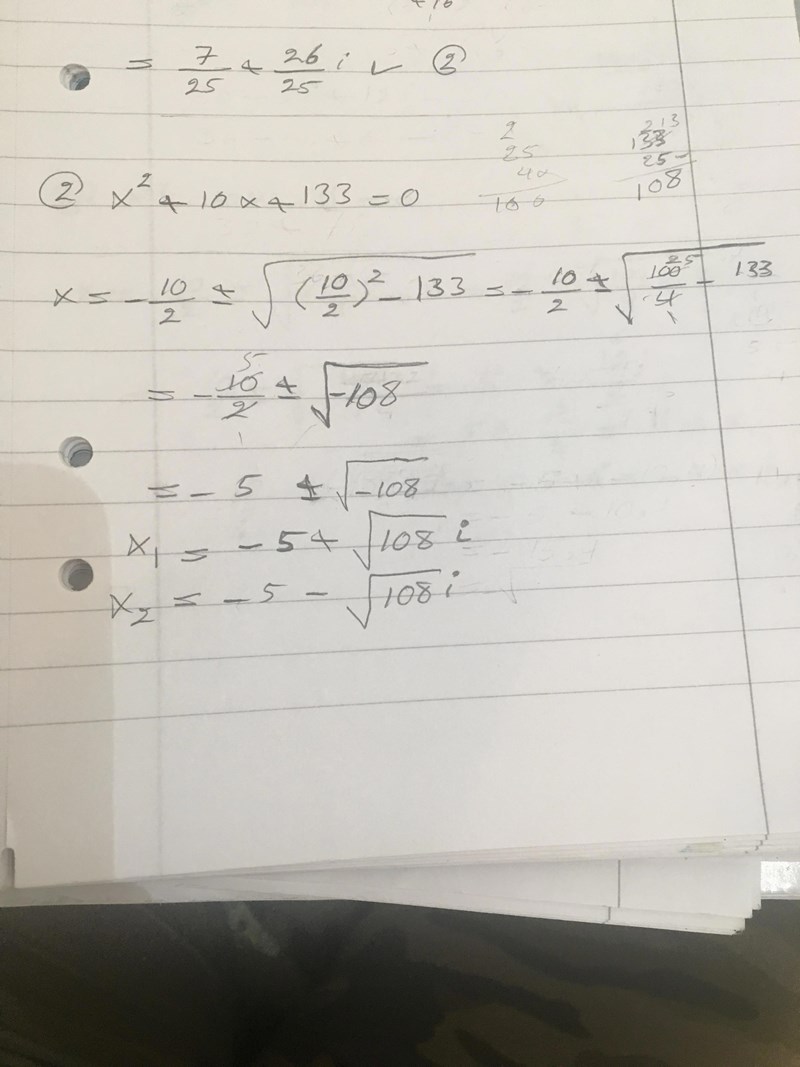 = 7/25 + 26/25 i ✓ ②
2
25
40
100
213
133
25 -
108
② x² + 10x + 133 = 0
x = - 10/2 ± √((10/2)² - 133) = - 10/2 ± √(100/4 - 133)
25
1
= - 10/2 ± √-108
5
1
= - 5 ± √-108
x₁ = - 5 + √108 i
x₂ = - 5 - √108 i